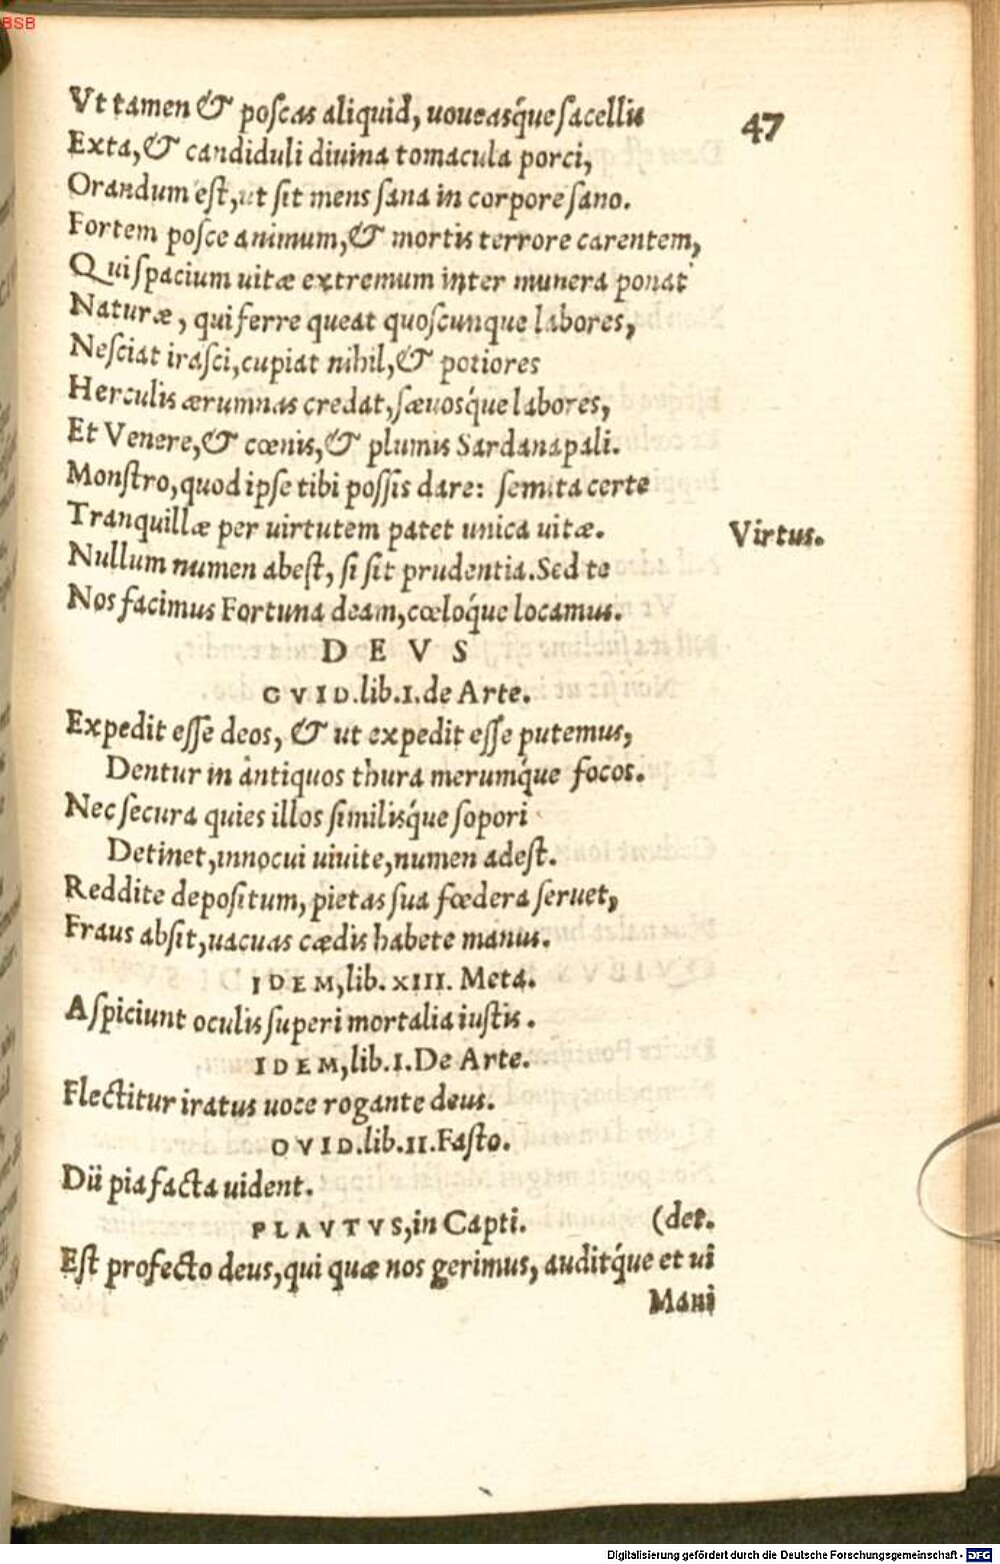 BSB
47
Vt tamen & poscas aliquid, voueasq́ue sacellis
Exta, & candiduli diuina tomacula porci,
Orandum est, ut sit mens sana in corpore sano.
Fortem posce animum, & mortis terrore carentem,
Qui spacium uitæ extremum inter munera ponat
Naturæ, qui ferre queat quoscunque labores,
Nesciat irasci, cupiat nihil, & potiores
Herculis ærumnas credat, sæuosq́ue labores,
Et Venere, & cœnis, & plumis Sardanapali.
Monstro, quod ipse tibi possis dare: semita certe
Tranquillæ per uirtutem patet unica uitæ.
Virtus.
Nullum numen abest, si sit prudentia. Sed te
Nos facimus Fortuna deam, cœloq́ue locamus.
DEVS
OVID. lib. I. de Arte.
Expedit esse deos, & ut expedit esse putemus,
Dentur in antiquos thura merumq́ue focos.
Nec secura quies illos similisq́ue sopori
Detinet, innocui uiuite, numen adest.
Reddite depositum, pietas sua fœdera seruet,
Fraus absit, uacuas cædis habete manus.
IDEM, lib. XIII. Meta.
Aspiciunt oculis superi mortalia iustis.
IDEM, lib. I. De Arte.
Flectitur iratus uoce rogante deus.
OVID. lib. II. Fasto.
Dii pia facta uident.
PLAVTVS, in Capti. (det.
Est profecto deus, qui quæ nos gerimus, auditq́ue et ui
Mani
Digitalisierung gefördert durch die Deutsche Forschungsgemeinschaft - DFG